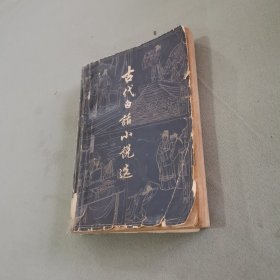 古代白話小說选